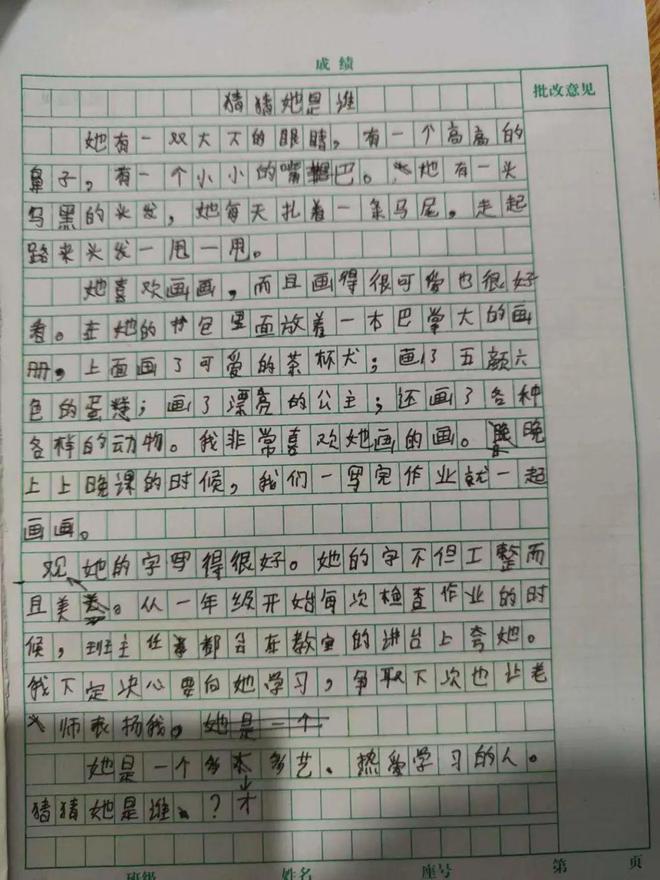 成绩
批改意见
猜猜她是谁
她有一双大大的眼睛，有一个高高的
鼻子，有一个小小的嘴巴。她有一头
乌黑的头发，她每天扎着一条马尾，走起
路来头发一甩一甩。
她喜欢画画，而且画得很可爱也很好
看。在她的书包里面放着一本巴掌大的画
册，上面画了可爱的茶杯犬；画了五颜六
色的蛋糕；画了漂亮的公主；还画了各种
各样的动物。我非常喜欢她画的画。晚
上上晚课的时候，我们一写完作业就一起
画画。
她的字写得很好。她的字不但工整而
且美观。从一年级开始每次检查作业的时
候，班主任都会在教室的讲台上夸她。
我下定决心要向她学习，争取下次也让老
师表扬我。她是一个
她是一个多才多艺、热爱学习的人。
猜猜她是谁？
班级 姓名 座号 第 页